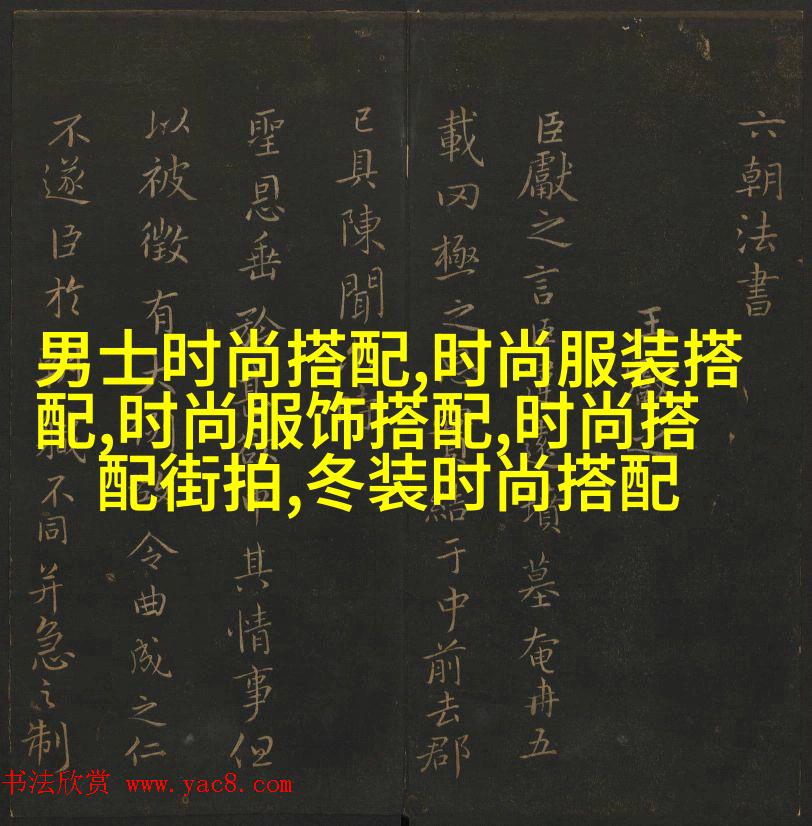 六朝法書
王
臣獻之言臣墳墓奄冉五
載罔極之于中前去郡
已具陳聞
聖恩垂其情事但
以被徵有令曲成之仁
不遂臣於不同并急之制
男士时尚搭配,时尚服装搭
配,时尚服饰搭配,时尚搭
配街拍,冬装时尚搭配
书法欣赏 www.yac8.com